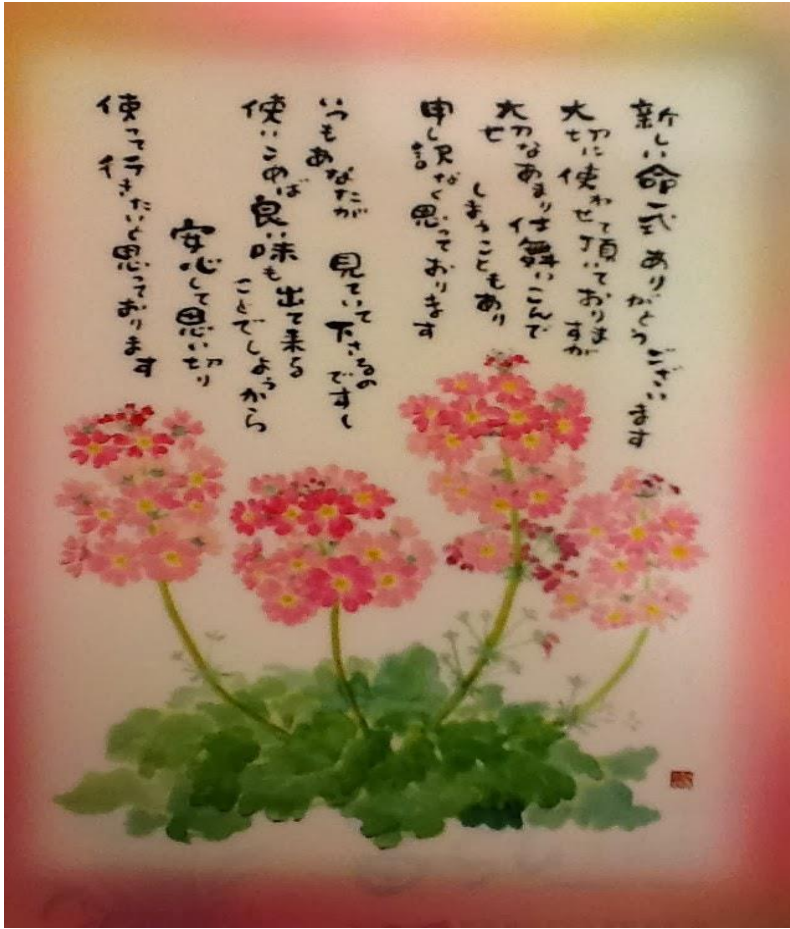 新しい命一式 ありがとうございます
大切に使わせて頂いておりますが
大切なあまり仕舞いこんで
しまうこともあり
申し訳なく思っております
いつもあなたが 見ていて下さるのですし
使いこめば良い味も出て来る
ことでしょうから
安心して思い切り
使って行きたいと思っております